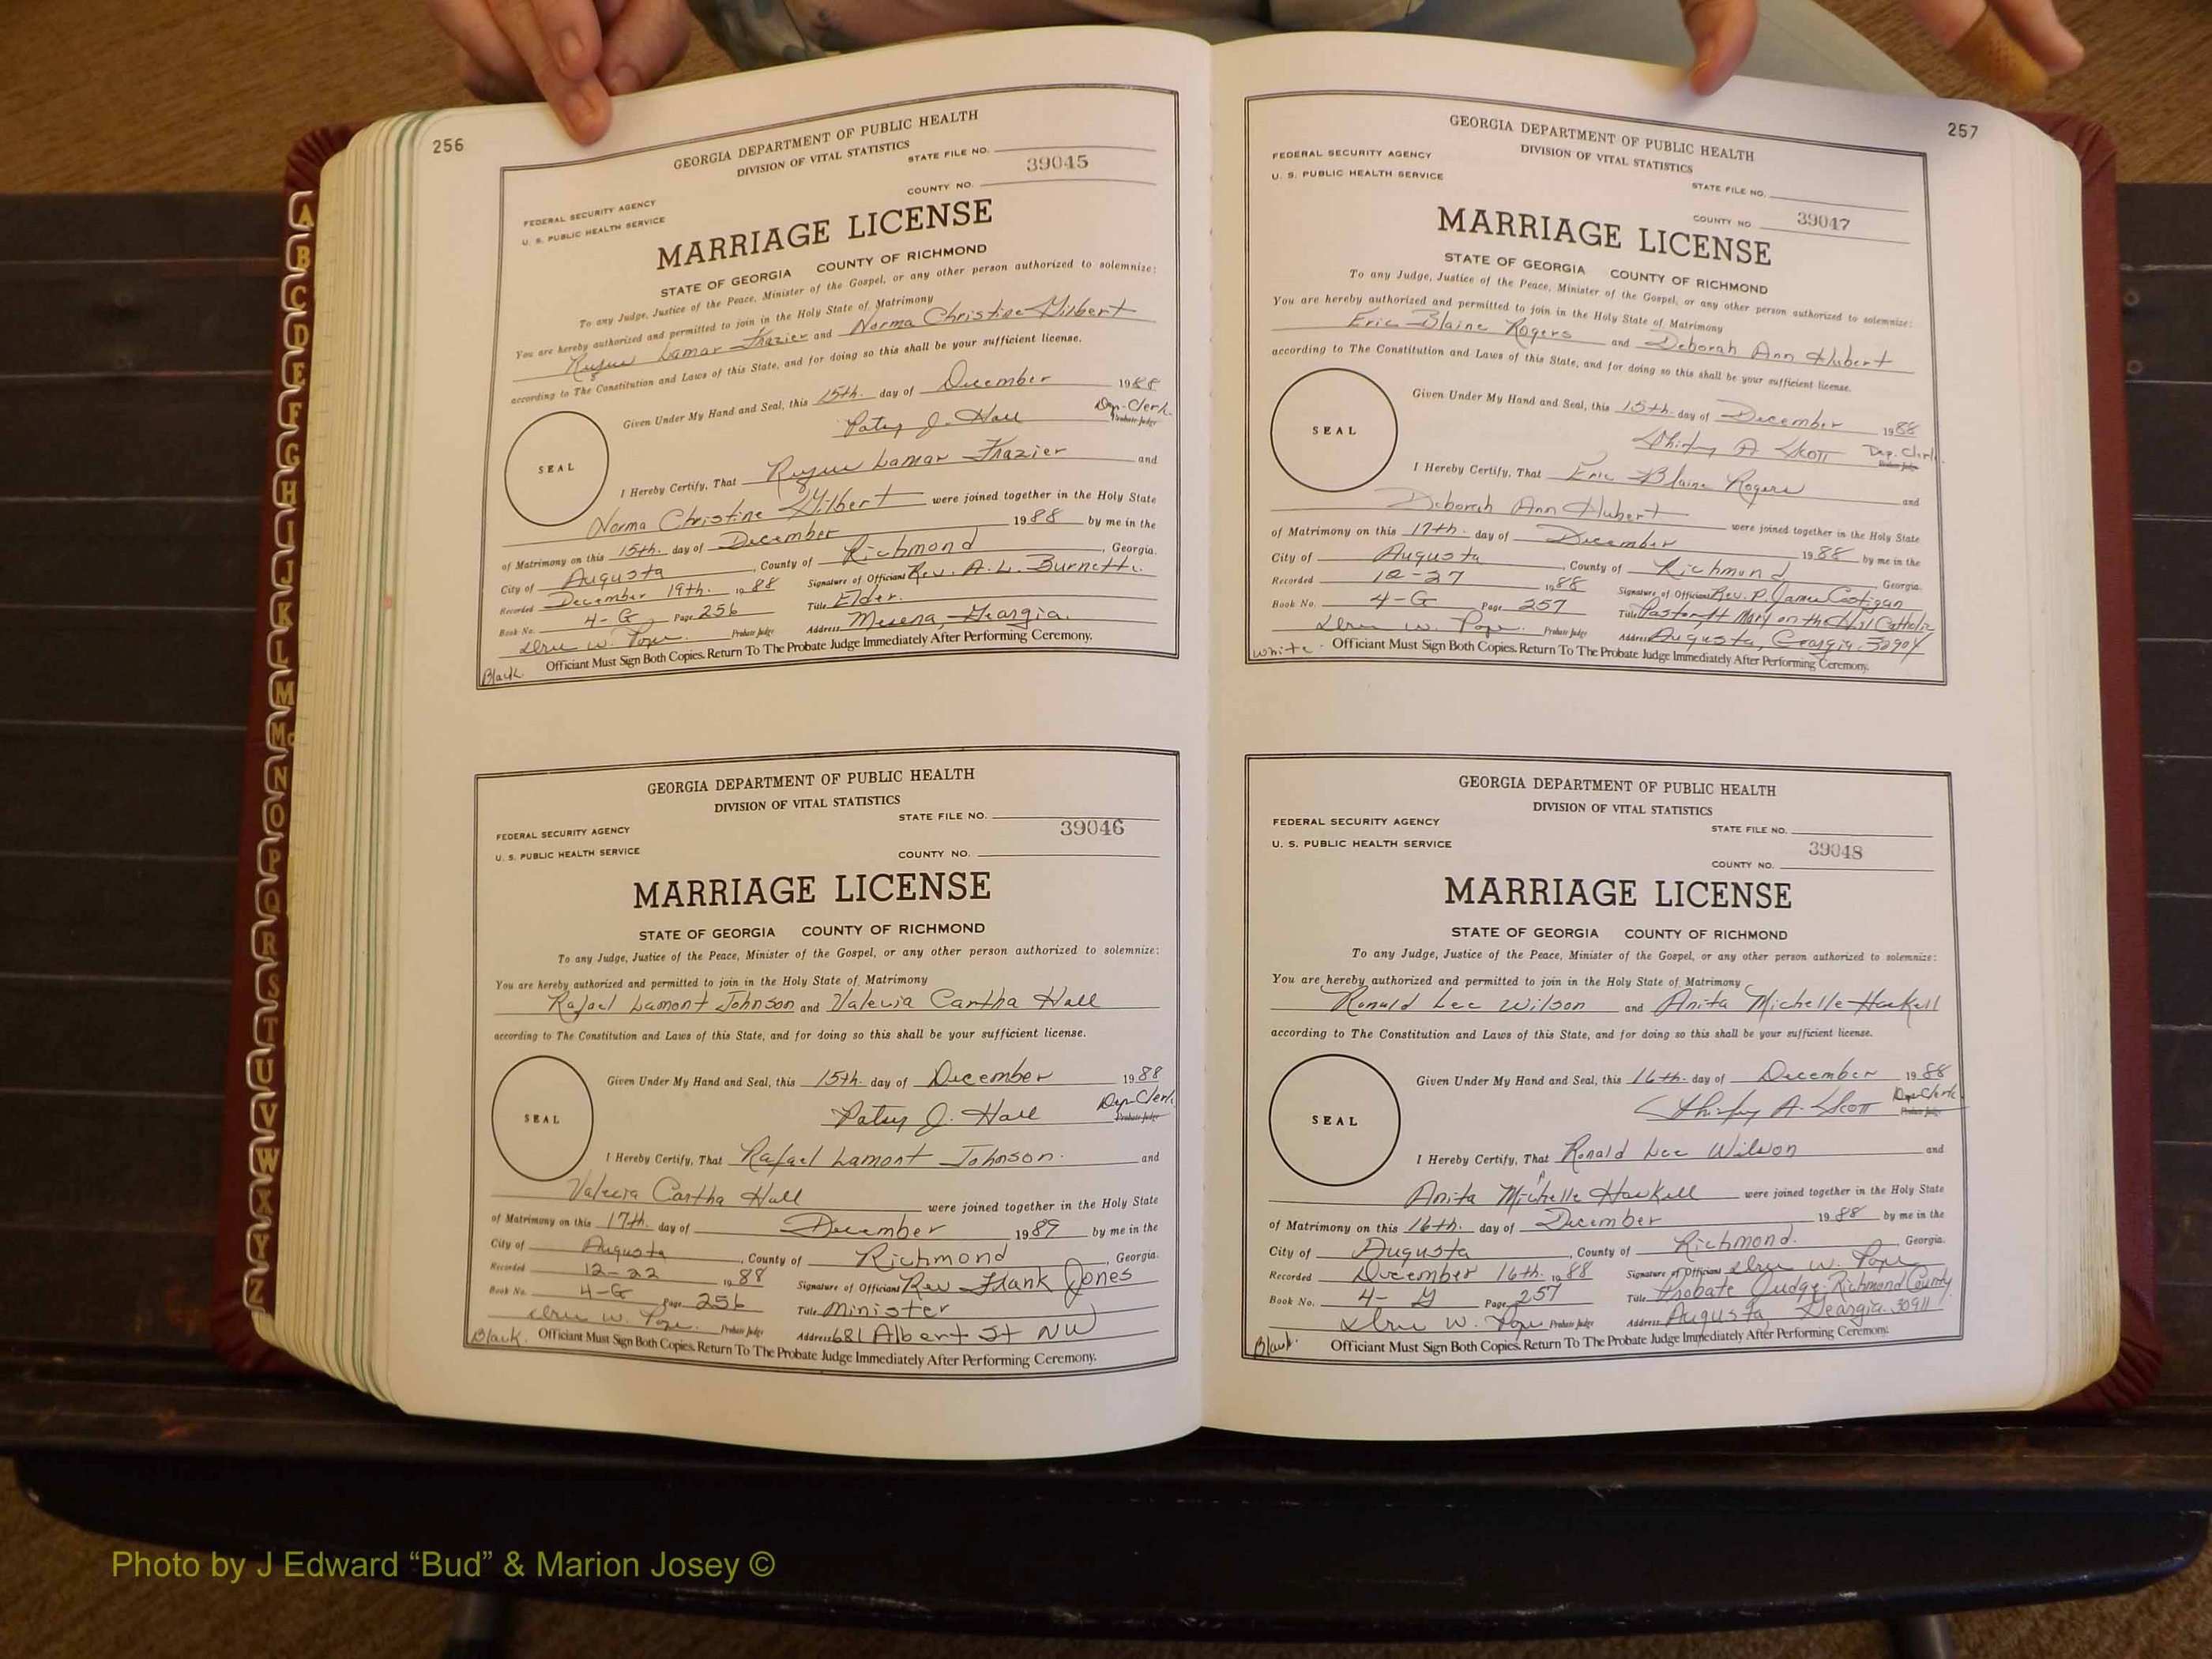 256
GEORGIA DEPARTMENT OF PUBLIC HEALTH
DIVISION OF VITAL STATISTICS
STATE FILE NO.
39045
FEDERAL SECURITY AGENCY
U. S. PUBLIC HEALTH SERVICE
COUNTY NO.
MARRIAGE LICENSE
STATE OF GEORGIA COUNTY OF RICHMOND
To any Judge, Justice of the Peace, Minister of the Gospel, or any other person authorized to solemnize:
You are hereby authorized and permitted to join in the Holy State of Matrimony
Lamar Frazier and Norma Christine Gilbert
according to The Constitution and Laws of this State, and for doing so this shall be your sufficient license.
Given Under My Hand and Seal, this 15th. day of December 1988
Patsy J. Hall Dep. Clerk
Probate Judge
SEAL
I Hereby Certify, That Lamar Frazier and
Norma Christine Gilbert were joined together in the Holy State
of Matrimony on this 15th. day of December 1988 by me in the
City of Augusta, County of Richmond, Georgia.
Recorded December 19th. 1988 Signature of Officiant Rev. A. L. Burnett.
Book No. 4-G Page 256 Title Elder.
W. Pope. Probate Judge Address Mesena, Georgia.
Black. Officiant Must Sign Both Copies. Return To The Probate Judge Immediately After Performing Ceremony.
GEORGIA DEPARTMENT OF PUBLIC HEALTH
DIVISION OF VITAL STATISTICS
STATE FILE NO.
39046
FEDERAL SECURITY AGENCY
U. S. PUBLIC HEALTH SERVICE
COUNTY NO.
MARRIAGE LICENSE
STATE OF GEORGIA COUNTY OF RICHMOND
To any Judge, Justice of the Peace, Minister of the Gospel, or any other person authorized to solemnize:
You are hereby authorized and permitted to join in the Holy State of Matrimony
Rafael Lamont Johnson and Valecia Cartha Hall
according to The Constitution and Laws of this State, and for doing so this shall be your sufficient license.
Given Under My Hand and Seal, this 15th. day of December 1988
Patsy J. Hall Dep. Clerk
Probate Judge
SEAL
I Hereby Certify, That Rafael Lamont Johnson. and
Valecia Cartha Hall were joined together in the Holy State
of Matrimony on this 17th. day of December 1989 by me in the
City of Augusta, County of Richmond, Georgia.
Recorded 12-22 1988 Signature of Officiant Rev Frank Jones
Book No. 4-G Page 256 Title Minister
W. Pope. Probate Judge Address 681 Albert St NW
Black. Officiant Must Sign Both Copies. Return To The Probate Judge Immediately After Performing Ceremony.
257
GEORGIA DEPARTMENT OF PUBLIC HEALTH
DIVISION OF VITAL STATISTICS
FEDERAL SECURITY AGENCY
U. S. PUBLIC HEALTH SERVICE
STATE FILE NO.
COUNTY NO. 39047
MARRIAGE LICENSE
STATE OF GEORGIA COUNTY OF RICHMOND
To any Judge, Justice of the Peace, Minister of the Gospel, or any other person authorized to solemnize:
You are hereby authorized and permitted to join in the Holy State of Matrimony
Eric Blaine Rogers and Deborah Ann Hubert
according to The Constitution and Laws of this State, and for doing so this shall be your sufficient license.
Given Under My Hand and Seal, this 15th. day of December 1988
Shirley A Scott Dep. Clerk
Probate Judge
SEAL
I Hereby Certify, That Eric Blaine Rogers and
Deborah Ann Hubert were joined together in the Holy State
of Matrimony on this 17th. day of December 1988 by me in the
City of Augusta, County of Richmond, Georgia.
Recorded 12-27 1988 Signature of Officiant Rev. P. James Costigan
Book No. 4-G Page 257 Title Pastor St Mary on the Hill Catholic
W. Pope. Probate Judge Address Augusta, Georgia 30904
White. Officiant Must Sign Both Copies. Return To The Probate Judge Immediately After Performing Ceremony.
GEORGIA DEPARTMENT OF PUBLIC HEALTH
DIVISION OF VITAL STATISTICS
FEDERAL SECURITY AGENCY
U. S. PUBLIC HEALTH SERVICE
STATE FILE NO.
39048
COUNTY NO.
MARRIAGE LICENSE
STATE OF GEORGIA COUNTY OF RICHMOND
To any Judge, Justice of the Peace, Minister of the Gospel, or any other person authorized to solemnize:
You are hereby authorized and permitted to join in the Holy State of Matrimony
Ronald Lee Wilson and Anita Michelle Haskell
according to The Constitution and Laws of this State, and for doing so this shall be your sufficient license.
Given Under My Hand and Seal, this 16th. day of December 1988
Shirley A. Scott Dep. Clerk
Probate Judge
SEAL
I Hereby Certify, That Ronald Lee Wilson and
Anita Michelle Haskell were joined together in the Holy State
of Matrimony on this 16th. day of December 1988 by me in the
City of Augusta, County of Richmond. Georgia.
Recorded December 16th. 1988 Signature of Officiant W. Pope
Book No. 4-G Page 257 Title Probate Judge, Richmond County
W. Pope Probate Judge Address Augusta, Georgia. 30911
Black. Officiant Must Sign Both Copies. Return To The Probate Judge Immediately After Performing Ceremony.
A
B
C
D
E
F
G
H
I
J
K
L
M
Mc
N
O
P
Q
R
S
T
U
V
W
X
Y
Z
Photo by J Edward “Bud” & Marion Josey ©